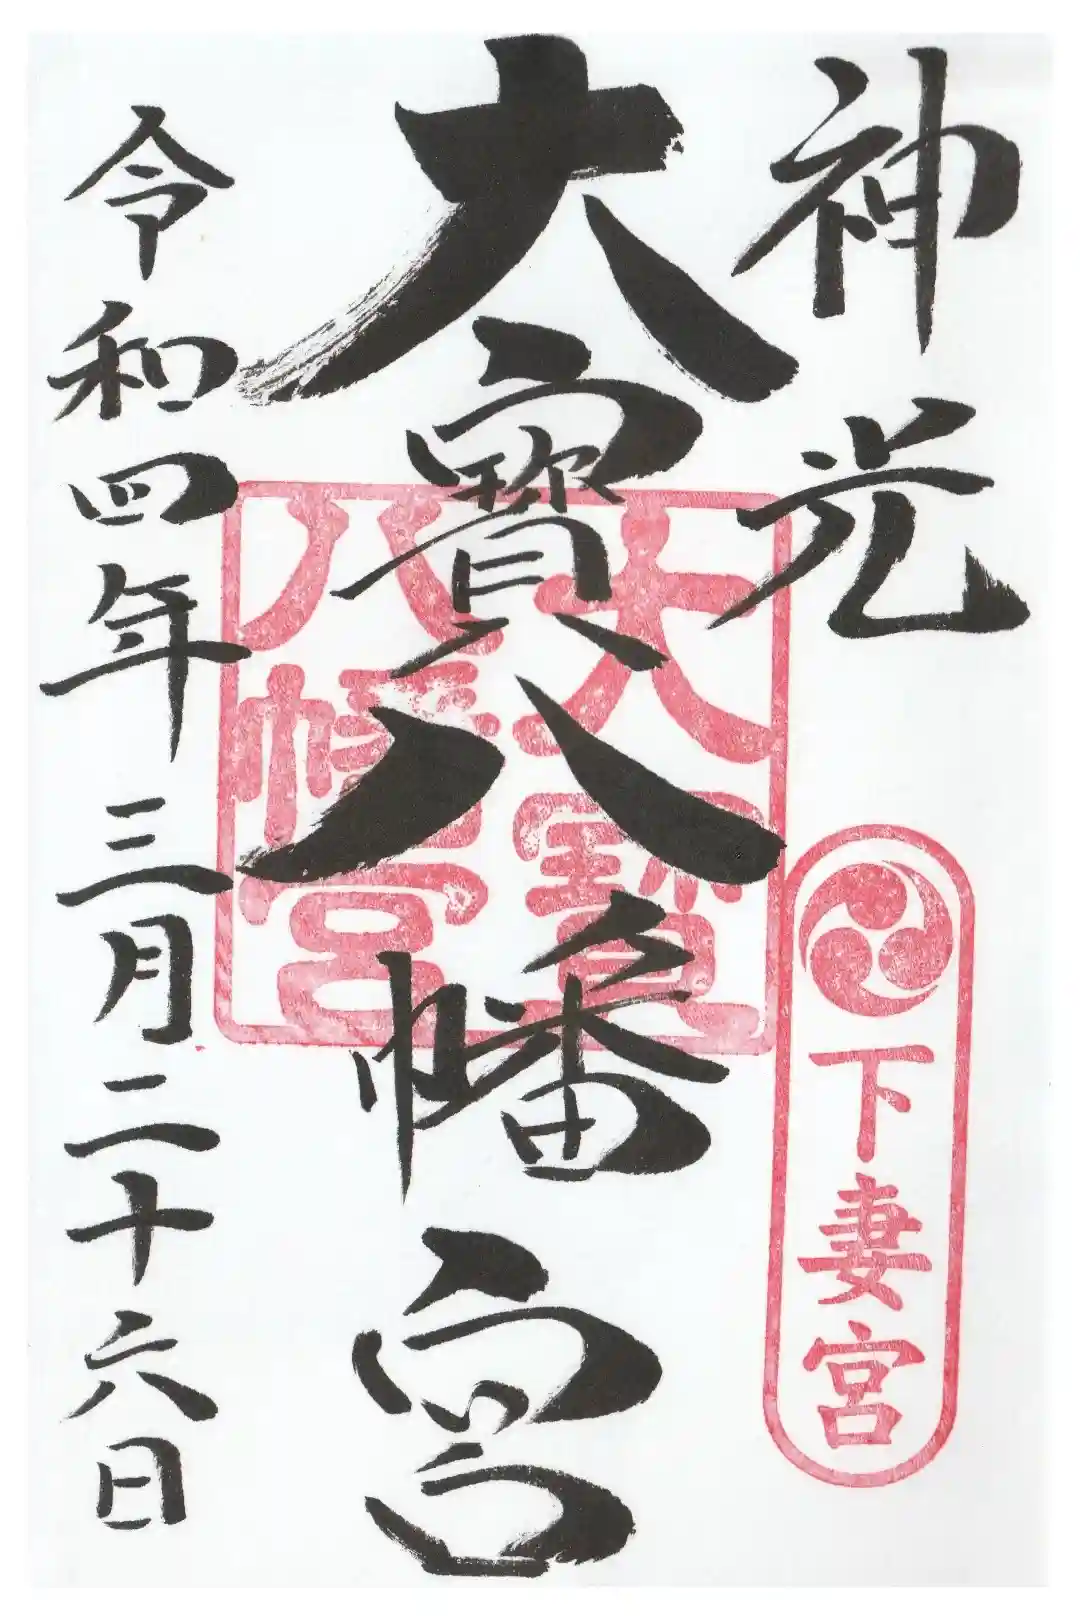 神光
下妻宮
大寳八幡宮
大寳
八幡宮
令和四年三月二十六日